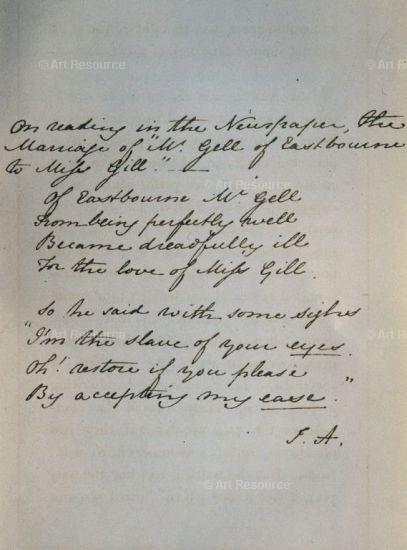 On reading in the Newspaper, the
Marriage of "Mr. Gell of Eastbourne
to Miss Gill." —
Of Eastbourne Mr Gell
From being perfectly well
Became dreadfully ill
For the love of Miss Gill.
So he said with some sighs
"I'm the slave of your eyes.
Oh! restore if you please
By accepting my ease."
J. A.
© Art Resource
© Art Resource
© Art Resource
© Art Resource
© Art Resource
© Art Resource